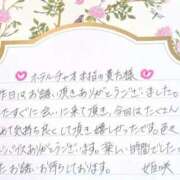 ♡ホテルチャオ本荘の貴方様♡
昨日はお誘い頂きありがとうございました。
たすぐに会いに来て頂き、今日はたくさん
めて気持ち良くして頂き嬉しかったです色々
ンパイありがとうございます。楽しい時間でした
たお誘いお待ちしております。